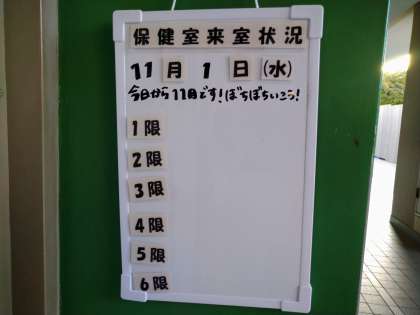 保健室来室状況
11月1日(水)
今日から11月です!ぼちぼちいこう!
1限
2限
3限
4限
5限
6限